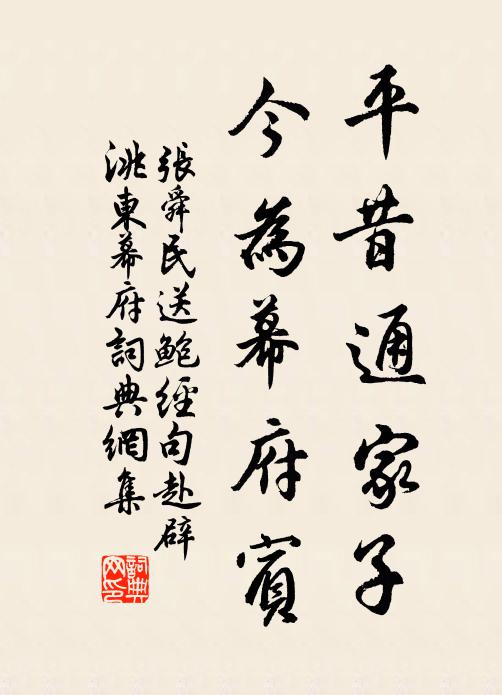 平昔通家子
今為幕府賓
張舜民送鮑經句赴辟
洮東幕府詞典網集
詞典网印